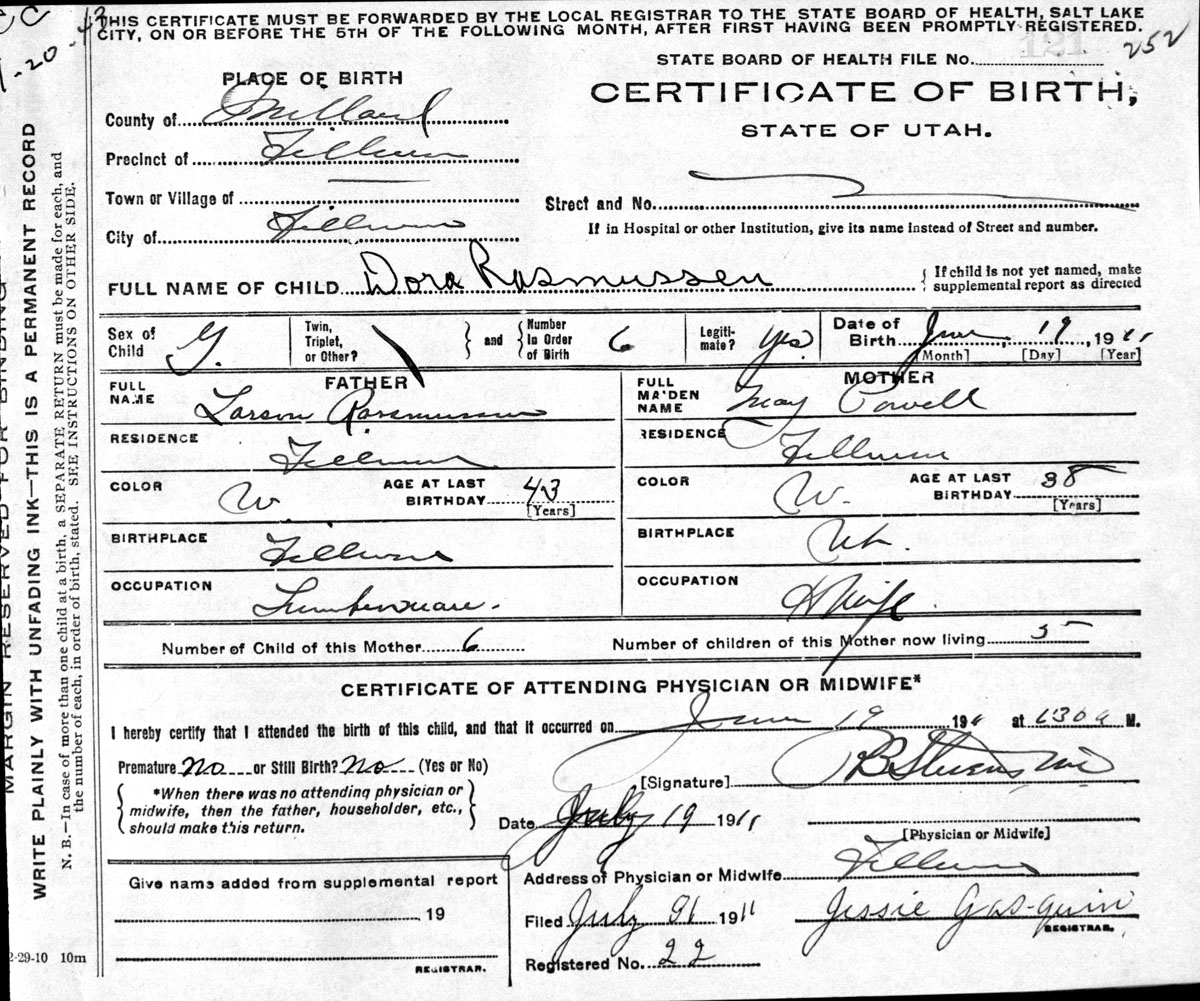 THIS CERTIFICATE MUST BE FORWARDED BY THE LOCAL REGISTRAR TO THE STATE BOARD OF HEALTH, SALT LAKE
CITY, ON OR BEFORE THE 5TH OF THE FOLLOWING MONTH, AFTER FIRST HAVING BEEN PROMPTLY REGISTERED.
252
STATE BOARD OF HEALTH FILE No.
PLACE OF BIRTH
CERTIFICATE OF BIRTH,
STATE OF UTAH.
County of Millard
Precinct of Fillmore
Town or Village of
Street and No.
City of Fillmore
If in Hospital or other Institution, give its name instead of Street and number.
FULL NAME OF CHILD Dora Rasmussen
{ If child is not yet named, make
supplemental report as directed
Sex of Child G.
Twin, Triplet, or Other?
and
Number In Order of Birth 6
Legiti-mate? Yes
Date of Birth June, 19, 1911
[Month] [Day] [Year]
FATHER
FULL NAME Larson Rasmussen
RESIDENCE Fillmore
COLOR W.
AGE AT LAST BIRTHDAY 43
[Years]
BIRTHPLACE Fillmore
OCCUPATION Lumberman.
MOTHER
FULL MAIDEN NAME May Powell
RESIDENCE Fillmore
COLOR W.
AGE AT LAST BIRTHDAY 38
[Years]
BIRTHPLACE Ut.
OCCUPATION H Wife
Number of Child of this Mother 6
Number of children of this Mother now living 5
CERTIFICATE OF ATTENDING PHYSICIAN OR MIDWIFE*
I hereby certify that I attended the birth of this child, and that it occurred on June 19 191 at 130 a M.
Premature No or Still Birth? No (Yes or No)
[Signature] Stevens
*When there was no attending physician or
midwife, then the father, householder, etc.,
should make this return.
Date July 19 1911
[Physician or Midwife]
Address of Physician or Midwife Fillmore
Give name added from supplemental report
19
REGISTRAR.
Filed July 1911 Jessie
REGISTRAR.
Registered No. 22
2-29-10 10m
MARGIN RESERVED FOR BINDING
WRITE PLAINLY WITH UNFADING INK—THIS IS A PERMANENT RECORD
N. B.—In case of more than one child at a birth, a SEPARATE RETURN must be made for each, and
the number of each, in order of birth, stated. SEE INSTRUCTIONS ON OTHER SIDE.